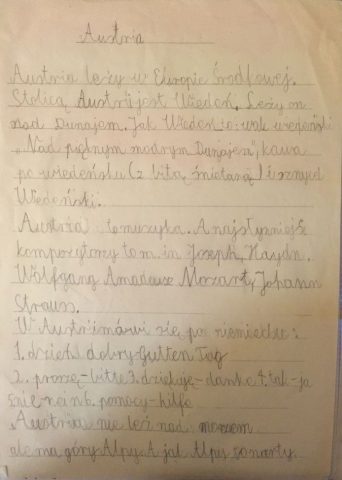 Austria
Austria leży w Europie Środkowej.
Stolicą Austrii jest Wiedeń. Leży on
nad Dunajem. Jak Wiedeń to: walc wiedeński
"Nad pięknym modrym Dunajem", kawa
po wiedeńsku (z bitą śmietaną) i sznycel
Wiedeński.
Austria to muzyka. A najsłynniejsi
kompozytorzy to m.in Joseph, Haydn.
Wolfgang Amadeusz Mozart, Johann
Strauss.
W Austri mówi się, po niemiecku:
1. dzień dobry-Gutten Tag
2. proszę-bitte 3. dziękuję-danke 4. tak-ja
5. nie-nein 6. pomocy-hilfe
Austria nie leż nad morzem
ale ma góry Alpy. A jak Alpy to narty.